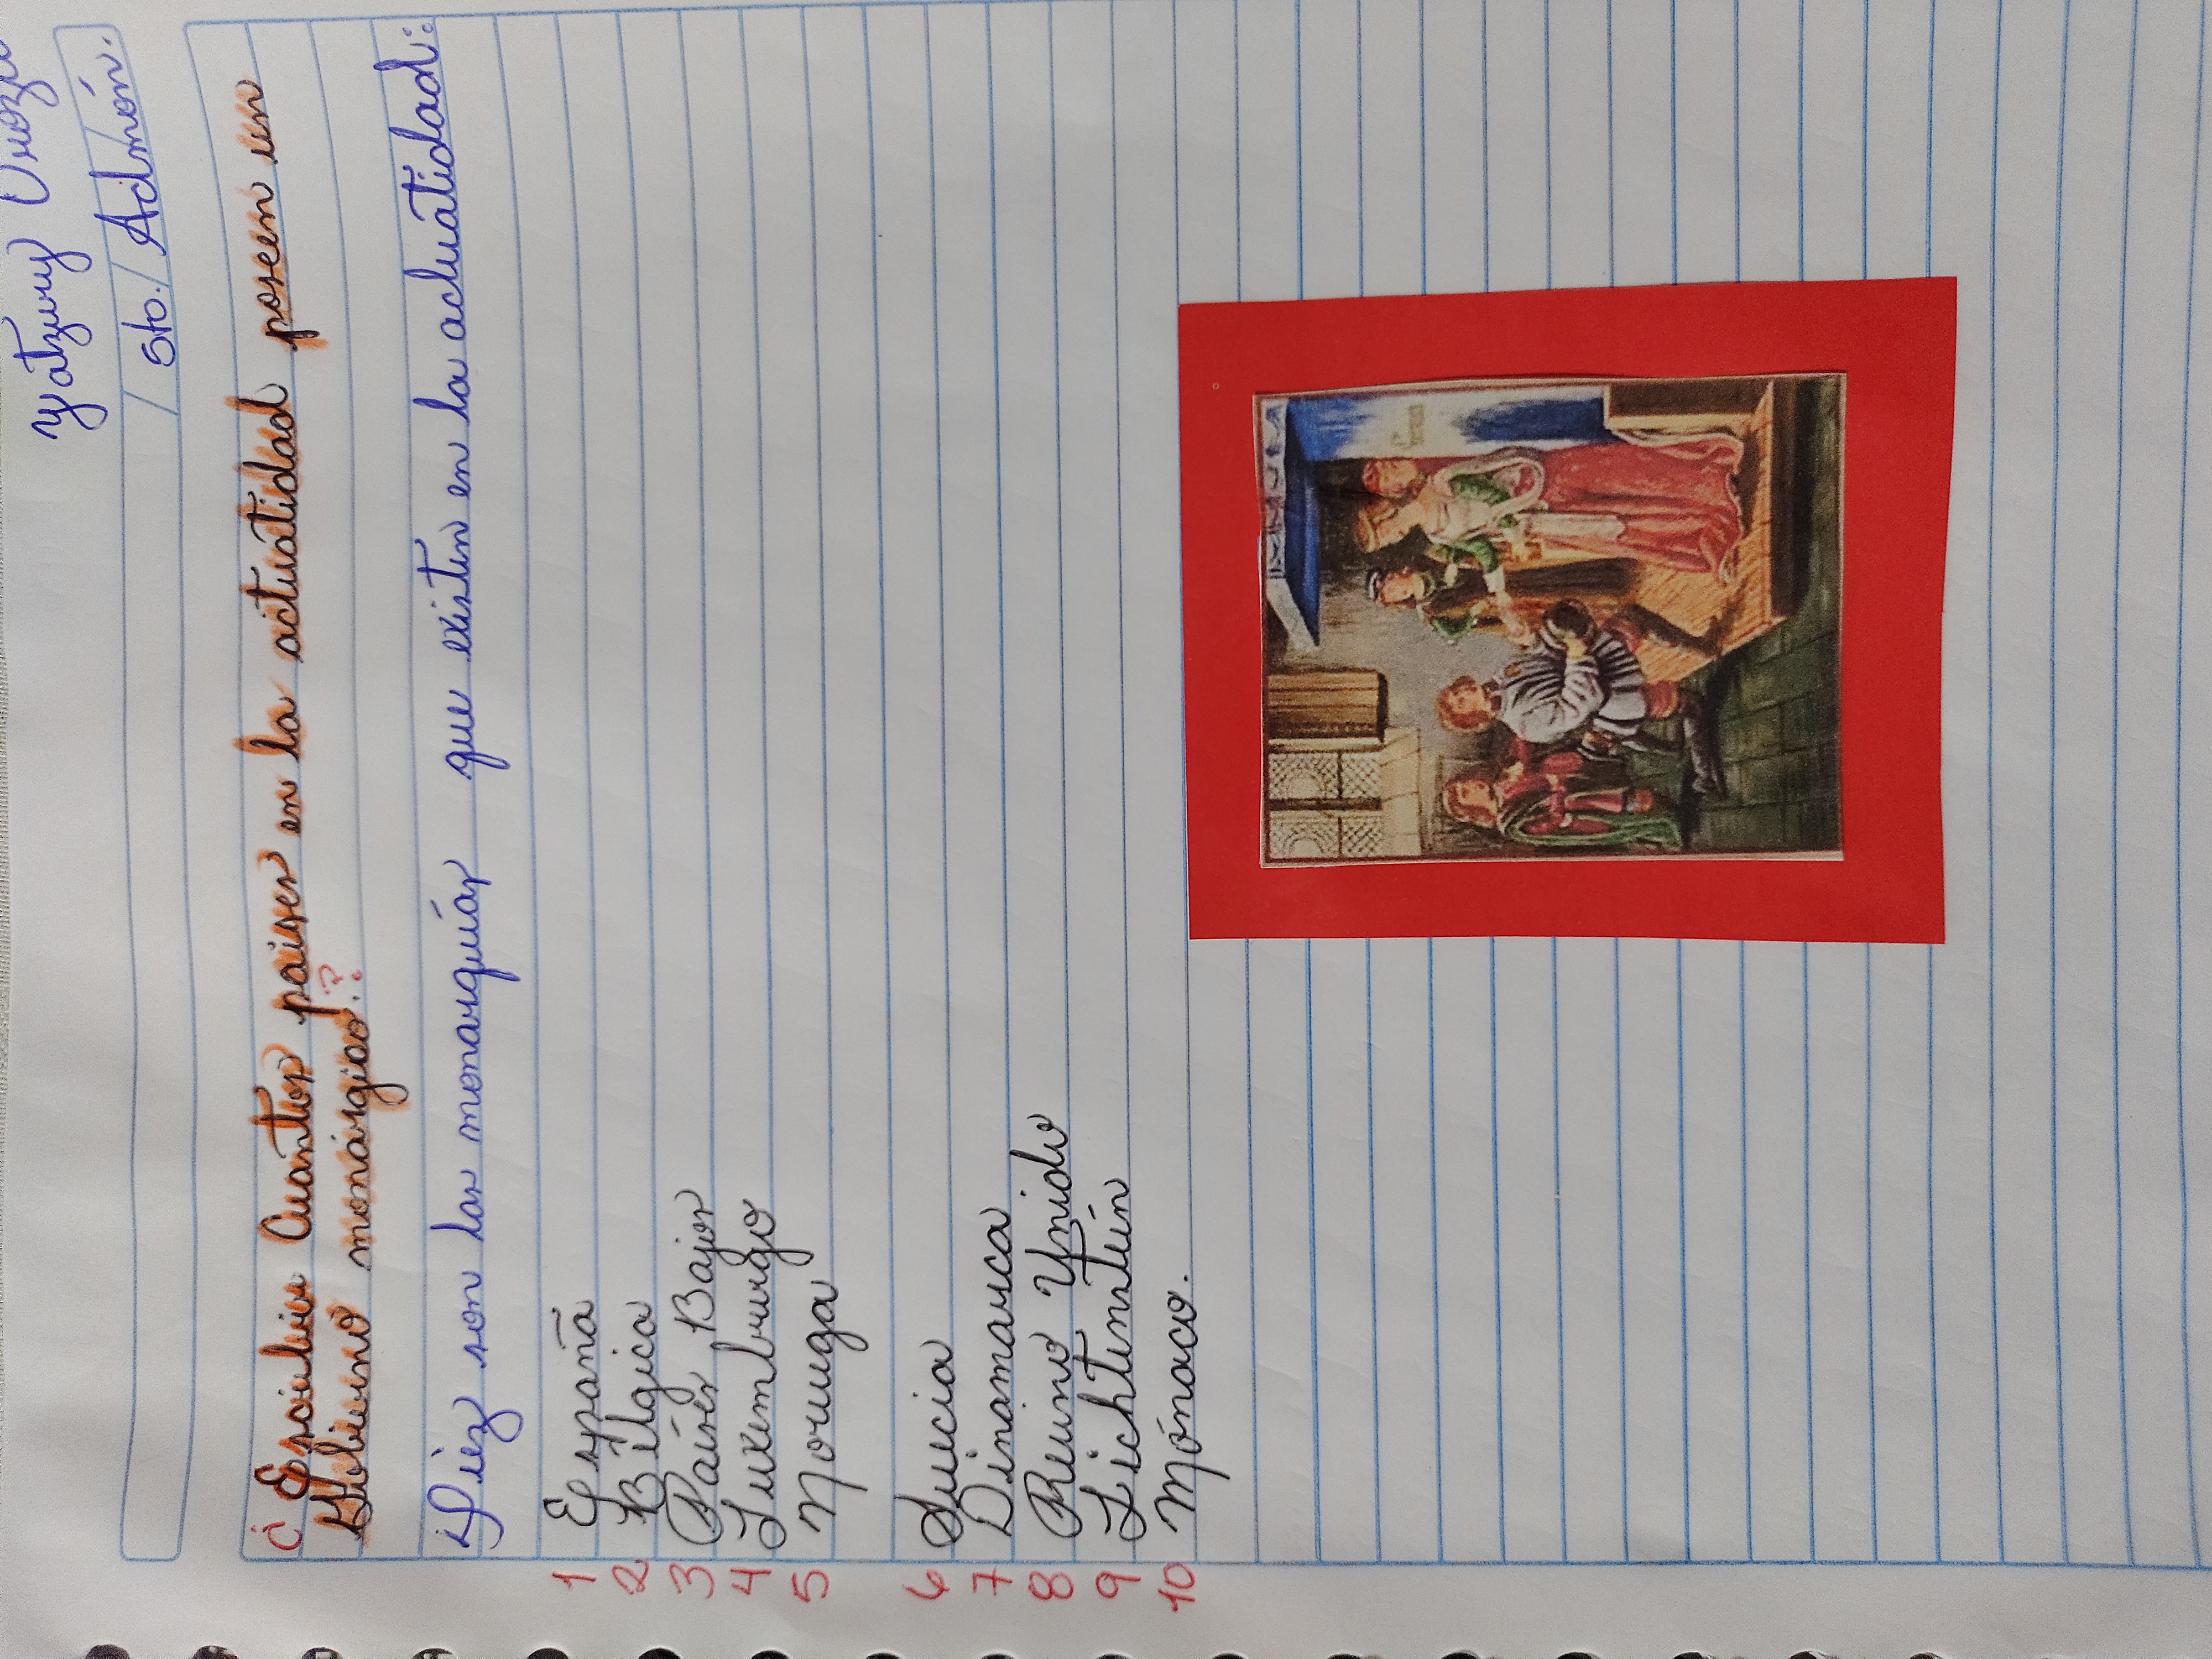 yatzury
5to./Admón.
¿ Escribir Cuantos paises en la actuatidad poseen un
Gobierno monárgiao?
Diez son las monarquías que existen en la actuatidad:
1 España
2 Bélgica
3 Paíres Bajos
4 Luxemburgo
5 Noruega
6 Suecia
7 Dinamarca
8 Reino Unido
9 Lichtenstein
10 Mónaco.